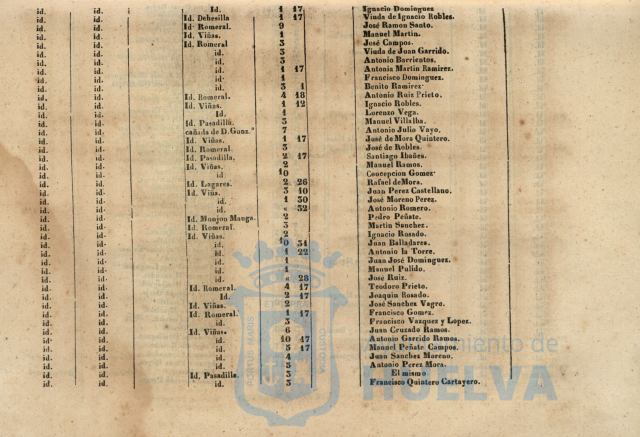 id. id. i Id. 1 17 Ignacio Dominguez
id. id. Id. Dehesilla 1 17 Viuda de Ignacio Robles.
id. id. Id. Romeral. 9 José Ramon Santo.
id. id. Id. Viñas. 1 Manuel Martin.
id. id. Id. Romeral 3 José Campos.
id. id. id. 3 Viuda de Juan Garrido.
id. id. id. 3 Antonio Barrientos.
id. id. id. 1 17 Antonia Martin Ramirez.
id. id. id. 1 Francisco Dominguez.
id. id. id. 3 1 Benito Ramirez
id. id. Id. Romeral. 4 18 Antonio Ruiz Prieto.
id. id. Id. Viñas. 1 12 Ignacio Robles.
id. id. Id. 1 Lorenzo Vega.
id. id. Id. Pasadilla. 3 Manuel Villalba.
id. id. cañada de D. Gonz.ª 7 Antonio Julio Vayo.
id. id. Id. Viñas. 1 17 José de Mora Quintero.
id. id. Id. Romeral. 3 José de Robles.
id. id. Id. Pasadilla, 2 17 Santiago Ibañes.
id. id. Id. Viñas. 2 Manuel Ramos.
id. id. id 10 Concepcion Gomez
id. id. Id. Lagares. 2 26 Rafael de Mora.
id. id. Id. Viña. 3 10 Juan Perez Castellano.
id. id. id. 1 30 José Moreno Perez.
id. id. id. « 32 Antonio Romero.
id. id. Id. Monjon Manga. 2 Pedro Peñate.
id. id. Id. Romeral. 3 Martin Sanchez.
id. id. Id. Viñas. 2 Ignacio Rosado.
id. id. id. 10 31 Juan Balladares.
id. id. id. 1 22 Antonio la Torre.
id. id. id. 1 Juan José Dominguez.
id. id. id. 1 Manuel Pulido.
id. id. id. « 28 José Ruiz.
id. id. Id. Romeral. 4 17 Teodoro Prieto.
id. id. Id. 2 17 Joaquin Rosado.
id. id. Id. Viñas. 2 José Sanchez Vagro.
id. id. Id. Romeral. 1 17 Francisco Gomez.
id. id. id. 3 Francisco Vazquez y Lopez.
id. id. Id. Viñas. 6 Juan Cruzado Ramos.
id. id. id. 10 17 Antonio Garrido Ramos.
id. id. id. 5 17 Manuel Peñate Campos.
id. id. id. 4 Juan Sanchez Moreno.
id. id. id. 5 Antonio Perez Mora.
id. id. Id. Pasadilla. 3 El mismo
id. id. id. 3 Francisco Quintero Cartayero.
HUELVA